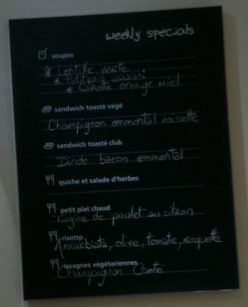 weekly specials
soupes
* Lentille verte
* wasabi
* Carotte orange miel
sandwich toasté végé
Champignon emmental noisette
sandwich toasté club
Dinde bacon emmental
quiche et salade d'herbes
petit plat chaud
Tagine de poulet au citron
risotto
olive, tomate, roquette
lasagnes végétariennes
Champignon